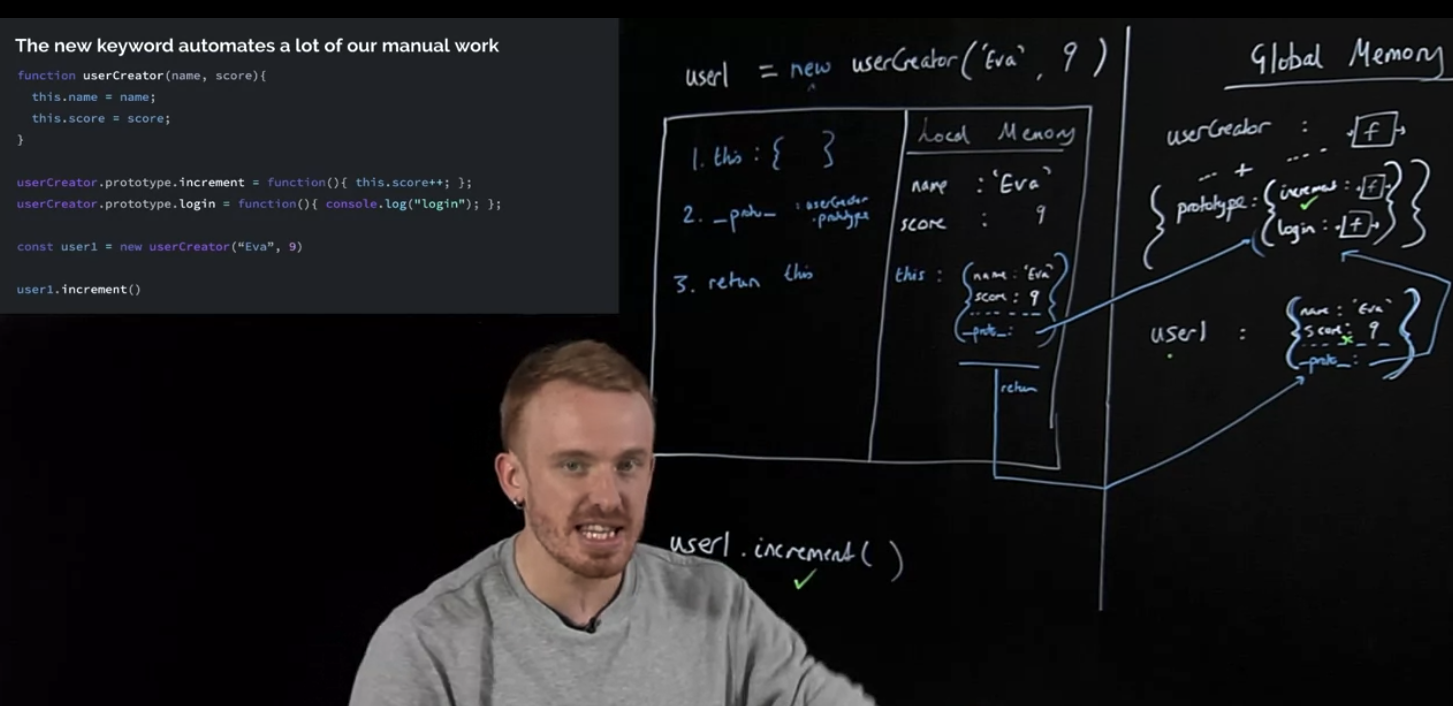 The new keyword automates a lot of our manual work
function userCreator(name, score){
this.name = name;
this.score = score;
}
userCreator.prototype.increment = function(){ this.score++; };
userCreator.prototype.login = function(){ console.log("login"); };
const user1 = new userCreator(“Eva”, 9)
user1.increment()
user1 = new userCreator('Eva', 9)
1. this : { }
2. _proto_ : userCreator
.prototype
3. return this
Local Memory
name : 'Eva'
score : 9
this : { name : 'Eva'
score : 9
_proto_ : }
return
user1.increment()
Global Memory
userCreator : f
+
{ prototype : { increment : f
login : f } }
user1 : { name : 'Eva'
score : 9
_proto_ : }